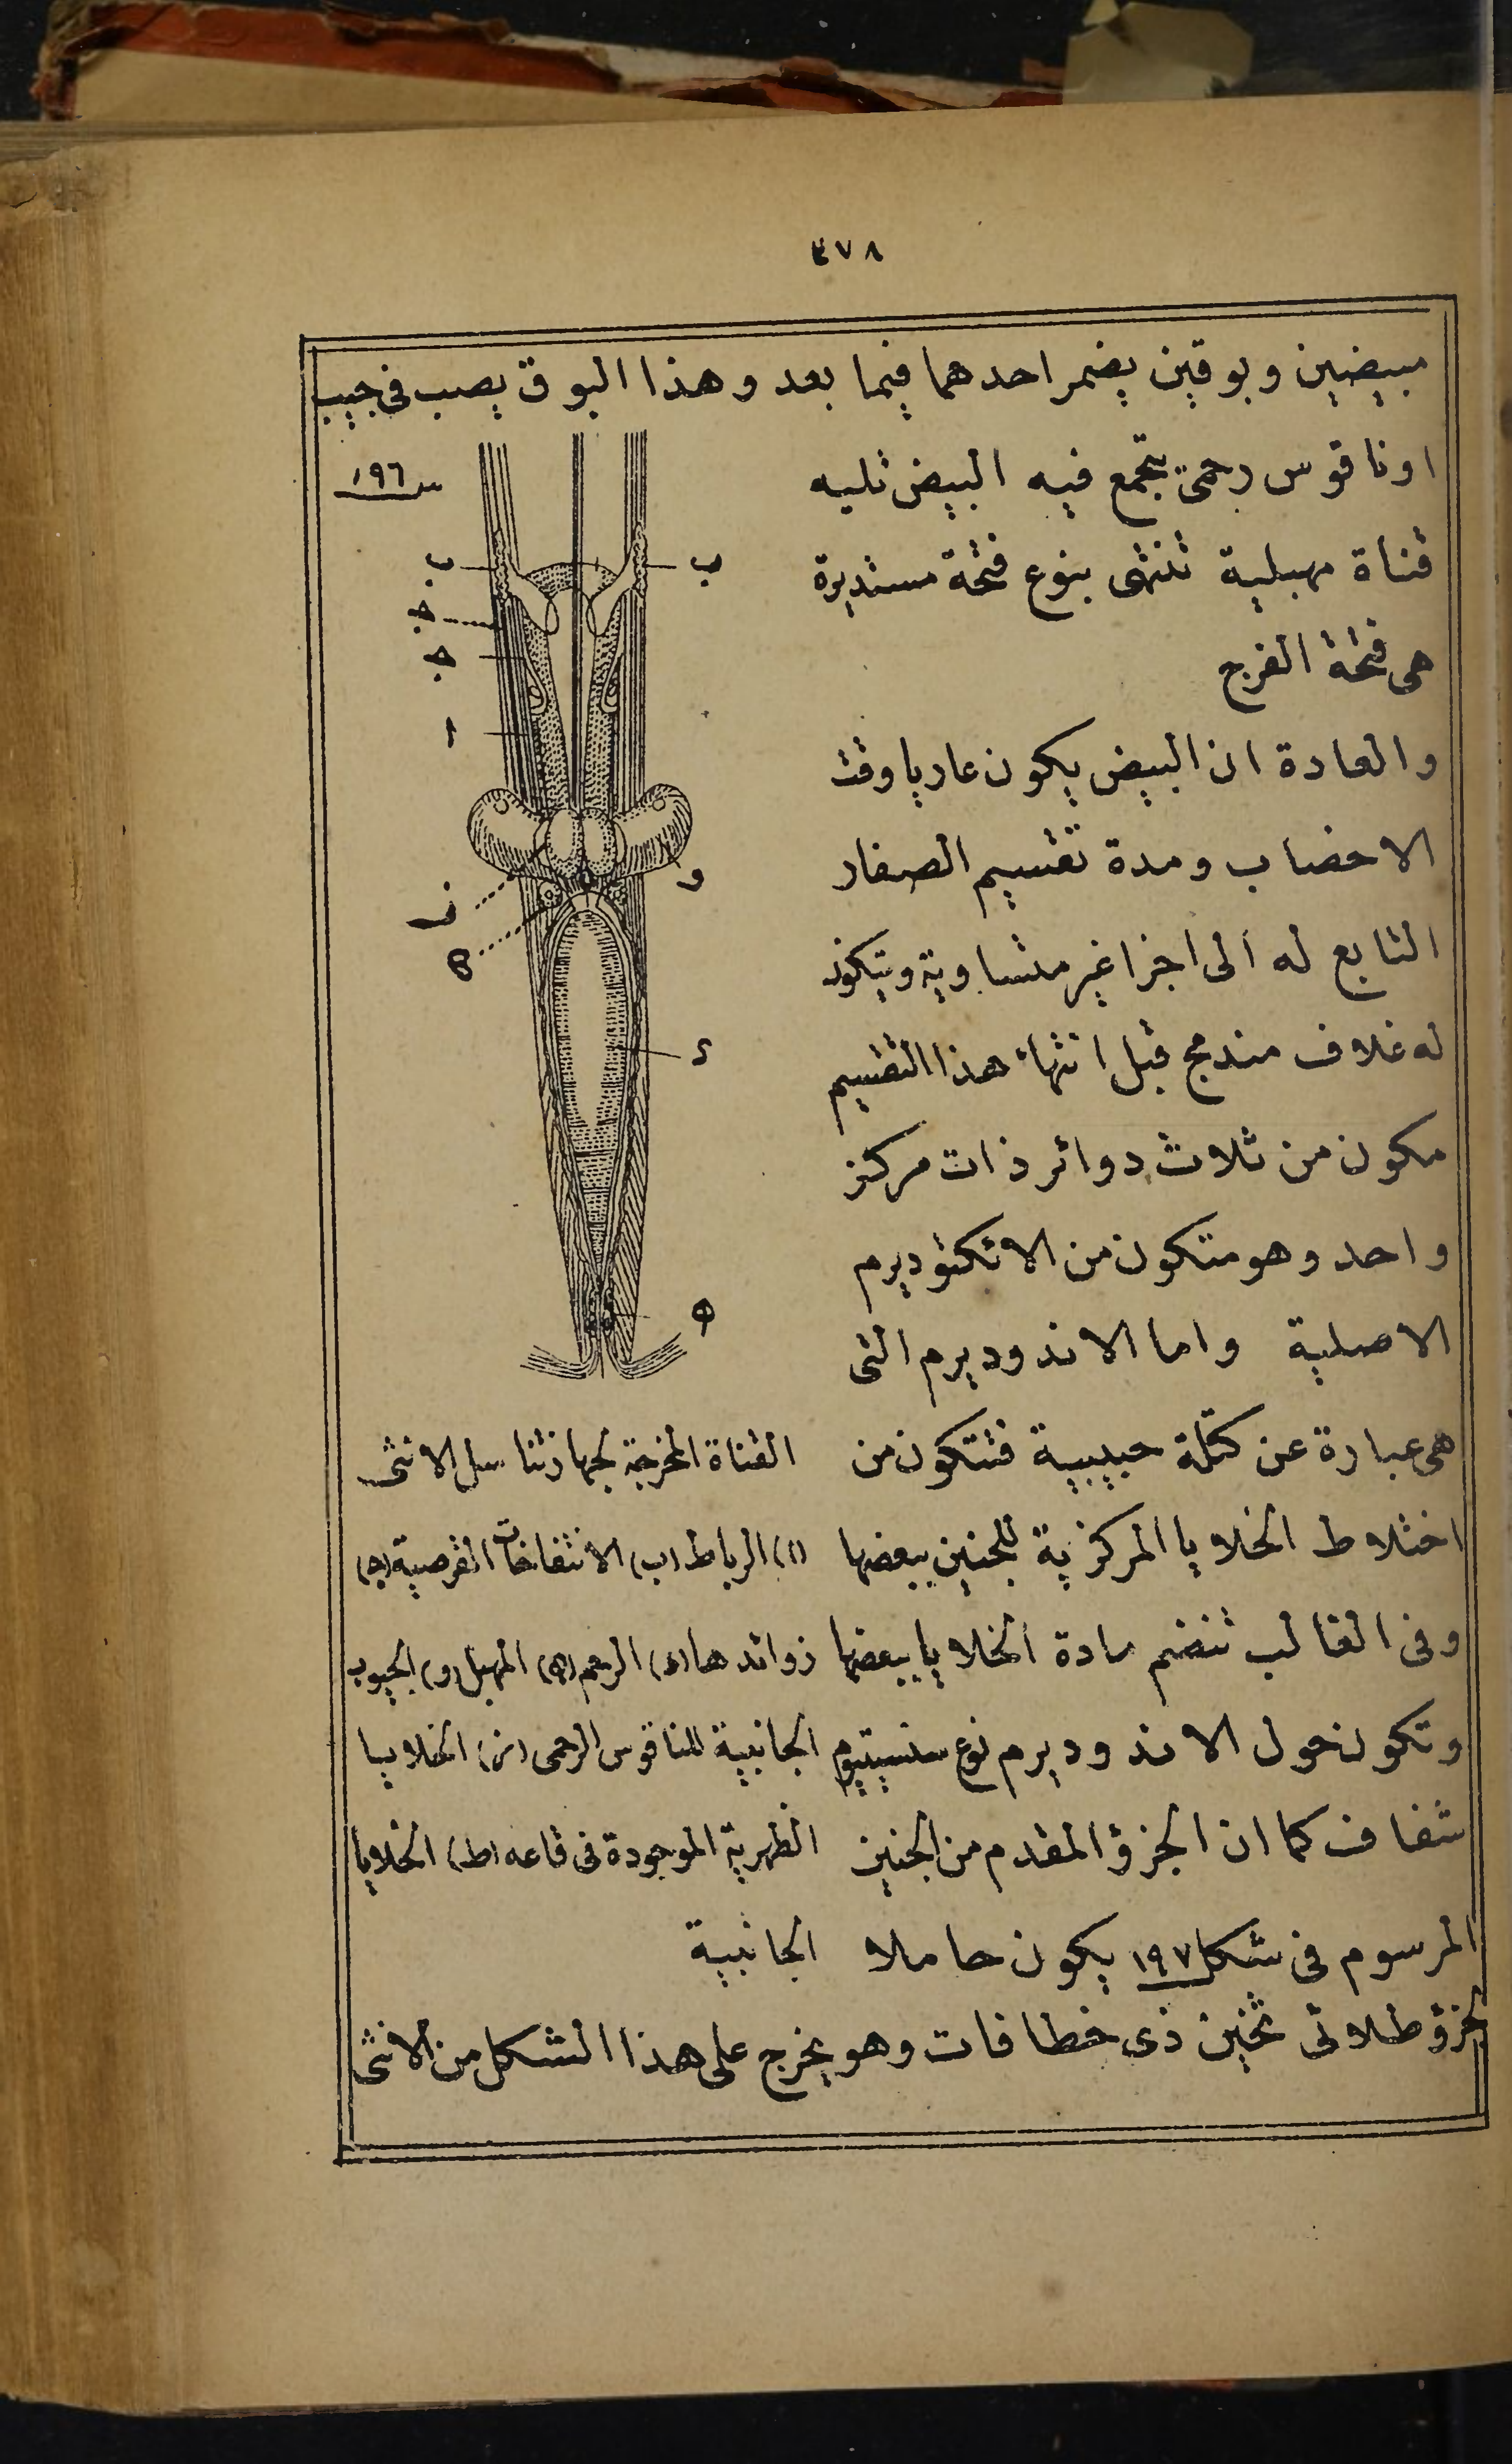 ٣٧٨
مبيضين وبوقين يضمر احدهما فيما بعد وهذا البوق يصب فى جيب
اوناقوس رحمى يتجمع فيه البيض تليه
قناة مهبلية تنتهى بنوع فتحة مستديرة
هى فتحة الفرج
والعادة ان البيض يكون عاريا وقت
الاخصاب ومدة تقسيم الصفار
التابع له الى اجزا غير متساوية ويتكون
له غلاف مندمج قبل انتهاء هذا التقسيم
مكون من ثلاث دوائر ذات مركز
واحد وهو متكون من الاكتوديرم
الاصلية واما الاندوديرم التى
هى عبارة عن كتلة حبيبية فتتكون من
اختلاط الخلايا المركزية للجنين ببعضها
وفى الغالب تنضم مادة الخلايا ببعضها
وتكون حول الاندوديرم نوع سنسيتيوم
شفاف كما ان الجزؤ المقدم من الجنين
المرسوم فى شكل ١٩٧ يكون حاملا
لجزؤ طلائى ثخين ذى خطافات وهو يخرج على هذا الشكل من الانثى
س ١٩٦
ب
ب
ج
ج
ا
و
ز
ح
د
ه
القناة المخرجة لجهاز تناسل الانثى
(ا) الرباط (ب) الانتفاخات القرصية (ج)
زوائدها (د) الرحم (ه) المهبل (و) الجيوب
الجانبية للناقوس الرحمى (ز) الخلايا
الظهرية الموجودة فى قاعه (ط) الخلايا
الجانبية